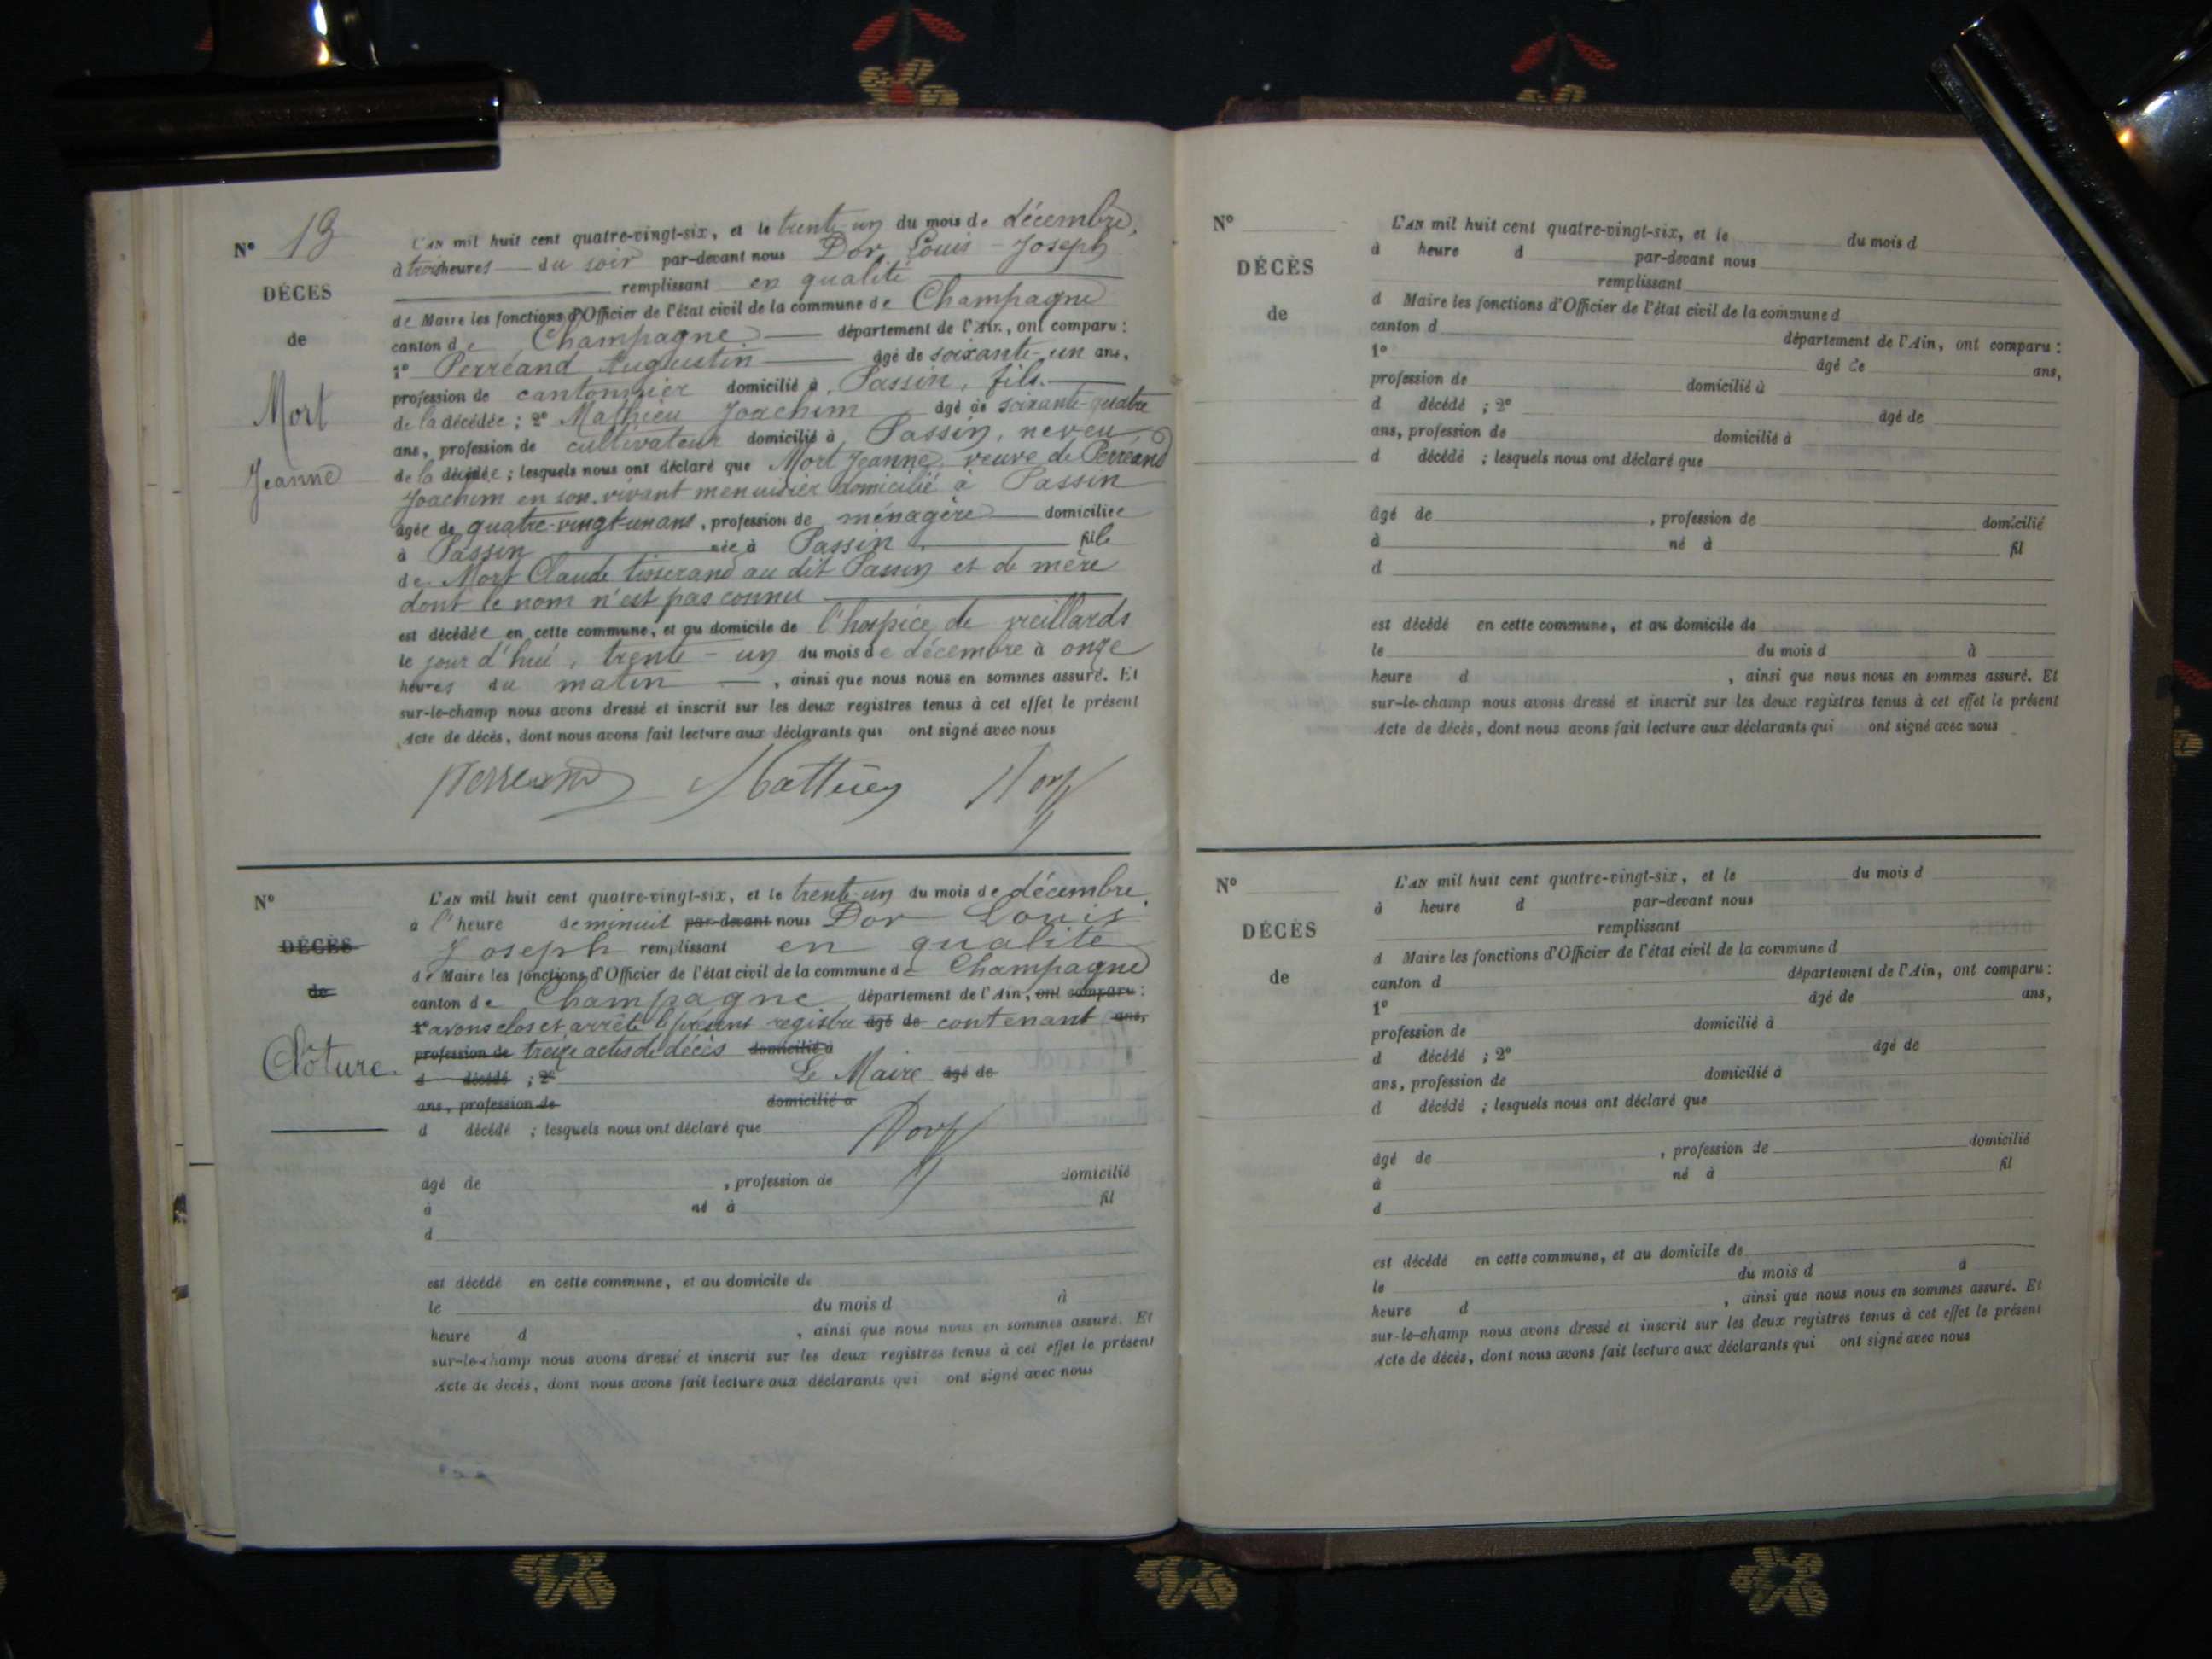 N° 13
DÉCÈS
de
Mort
Jeanne
L'AN mil huit cent quatre-vingt-six, et le trente-un du mois de décembre,
à trois heures du soir par-devant nous Dor Louis-Joseph
remplissant en qualité
de Maire les fonctions d'Officier de l'état civil de la commune de Champagne
canton de Champagne département de l'Ain, ont comparu :
1° Perréand Augustin âgé de soixante-un ans,
profession de cantonnier domicilié à Passin, fils
de la décédée ; 2° Mathieu Joachim âgé de soixante-quatre
ans, profession de cultivateur domicilié à Passin, neveu
de la décédée ; lesquels nous ont déclaré que Mort Jeanne, veuve de Perréand
Joachim en son vivant menuisier domicilié à Passin
âgée de quatre-vingt-un ans, profession de ménagère domiciliée
à Passin née à Passin fille
de Mort Claude tisserand au dit Passin et de mère
dont le nom n'est pas connu
est décédée en cette commune, et au domicile de l'hospice de vieillards
le jour d'hui, trente-un du mois de décembre à onze
heures du matin, ainsi que nous nous en sommes assuré. Et
sur-le-champ nous avons dressé et inscrit sur les deux registres tenus à cet effet le présent
Acte de décès, dont nous avons fait lecture aux déclarants qui ont signé avec nous
Perreand Mathieu Dor
N°
DÉCÈS
de
Clôture.
L'AN mil huit cent quatre-vingt-six, et le trente-un du mois de décembre,
à l'heure de minuit par-devant nous Dor Louis
Joseph remplissant en qualité
de Maire les fonctions d'Officier de l'état civil de la commune de Champagne
canton de Champagne département de l'Ain, ont comparu :
1° avons clos et arrêté le présent registre âgé de contenant ans,
profession de treize actes de décès domicilié à
d décédé ; 2° Le Maire âgé de
ans, profession de domicilié à
d décédé ; lesquels nous ont déclaré que Dor
âgé de , profession de domicilié
à né à fil
d
est décédé en cette commune, et au domicile de
le du mois d à
heure d , ainsi que nous nous en sommes assuré. Et
sur-le-champ nous avons dressé et inscrit sur les deux registres tenus à cet effet le présent
Acte de décès, dont nous avons fait lecture aux déclarants qui ont signé avec nous
N°
DÉCÈS
de
L'AN mil huit cent quatre-vingt-six, et le du mois d
à heure d par-devant nous
remplissant
d Maire les fonctions d'Officier de l'état civil de la commune d
canton d département de l'Ain, ont comparu :
1° âgé de ans,
profession de domicilié à
d décédé ; 2° âgé de
ans, profession de domicilié à
d décédé ; lesquels nous ont déclaré que
âgé de , profession de domicilié
à né à fil
d
est décédé en cette commune, et au domicile de
le du mois d à
heure d , ainsi que nous nous en sommes assuré. Et
sur-le-champ nous avons dressé et inscrit sur les deux registres tenus à cet effet le présent
Acte de décès, dont nous avons fait lecture aux déclarants qui ont signé avec nous
N°
DÉCÈS
de
L'AN mil huit cent quatre-vingt-six, et le du mois d
à heure d par-devant nous
remplissant
d Maire les fonctions d'Officier de l'état civil de la commune d
canton d département de l'Ain, ont comparu :
1° âgé de ans,
profession de domicilié à
d décédé ; 2° âgé de
ans, profession de domicilié à
d décédé ; lesquels nous ont déclaré que
âgé de , profession de domicilié
à né à fil
d
est décédé en cette commune, et au domicile de
le du mois d à
heure d , ainsi que nous nous en sommes assuré. Et
sur-le-champ nous avons dressé et inscrit sur les deux registres tenus à cet effet le présent
Acte de décès, dont nous avons fait lecture aux déclarants qui ont signé avec nous